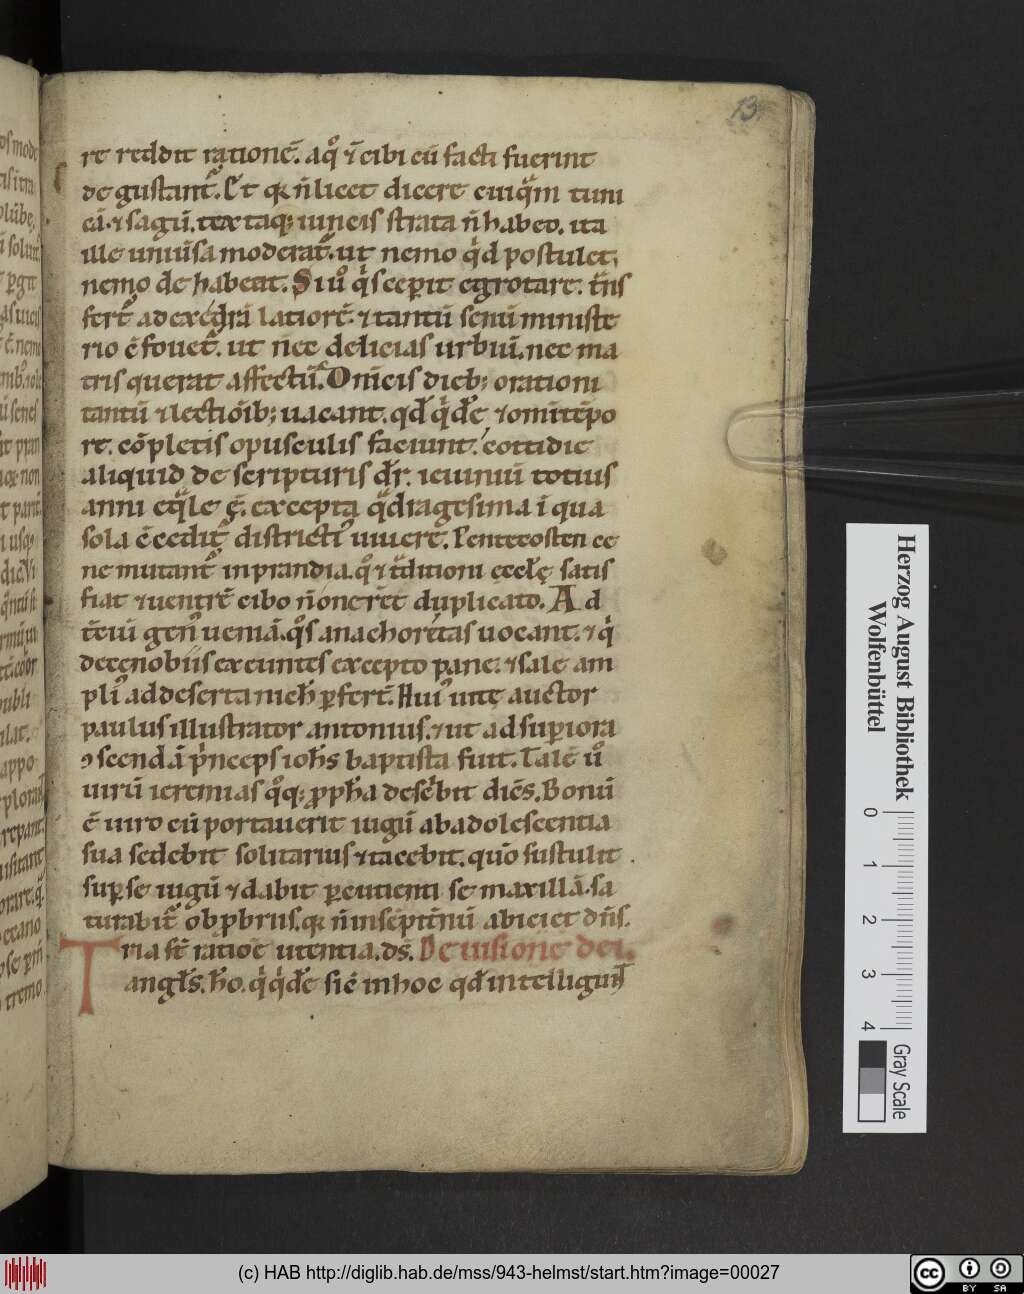 13
re reddit rationē. aq͛ ⁊̄ cibi cū facti fuerint
de gustant᷑. Et qꝛ n̄ licet dicere cuiqͣm tuni
cā. ⁊ sagū. textaqꝫ iuncis strata n̄ habeo. ita
ille uniūsa moderat᷑. ut nemo qͥd postulet,
nemo dehabeat. Si uͦ qͥs ceꝑit egrotare. tn̄s
fert᷑ ad exedrā latiorē. ⁊ tantū senū ministe
rio cōfouet᷑. ut nec delicias urbiū. nec ma
tris querat affectū. Dnīcis diebꝫ orationi
tantū ⁊ lectiōibꝫ uacant. qd̄ qͥdē ⁊ omī tēpo
re. cōpletis opusculis faciunt. cottidie
aliquid de scripturis dr̄. ieiuniū totius
anni eqͣle ē. excepta qͣdragesima ī qua
sola cōcedit᷑ districti᷒ uiuere. Pentecosten ce
ne mutant᷑ in prandia. qͦ ⁊ tͣditioni eccłę satis
fiat ⁊ uentrē cibo n̄ oneret duplicato. Ad
tciū gen᷒ ueniā. qͦs anachoretas uocant. ⁊ qͥ
de cenobiis exeuntes excepto pane. ⁊ sale am
pli᷒ ad deserta nich̄ ꝑfert̄. Hui᷒ uitę auctor
paulus illustrator antonius. ⁊ ut ad suꝑiora
ꝯscendā pͥnceps ioh̄s baptista fuit. Talē uͦ
uirū ieremias qͦqꝫ ꝓph̄a descͥbit dicēs. Bonū
ē uiro cū portauerit iugū ab adolescentia
sua sedebit solitarius ⁊ tacebit. quō sustulit
suꝑ se iugū ⁊ dabit ꝑcutienti se maxillā. sa
turabit᷑ obpbriis. qꝛ n̄ in sēpitn̄ū abiciet dn̄s.
Tria st̄ ratiōe utentia. ds̄. De uisione dei.
angłs. hō. qͥ qͥdē sic̄ in hoc qd̄ intelligunt
Herzog August Bibliothek
Wolfenbüttel
0 1 2 3 4
Gray Scale
(c) HAB http://diglib.hab.de/mss/943-helmst/start.htm?image=00027
cc BY SA